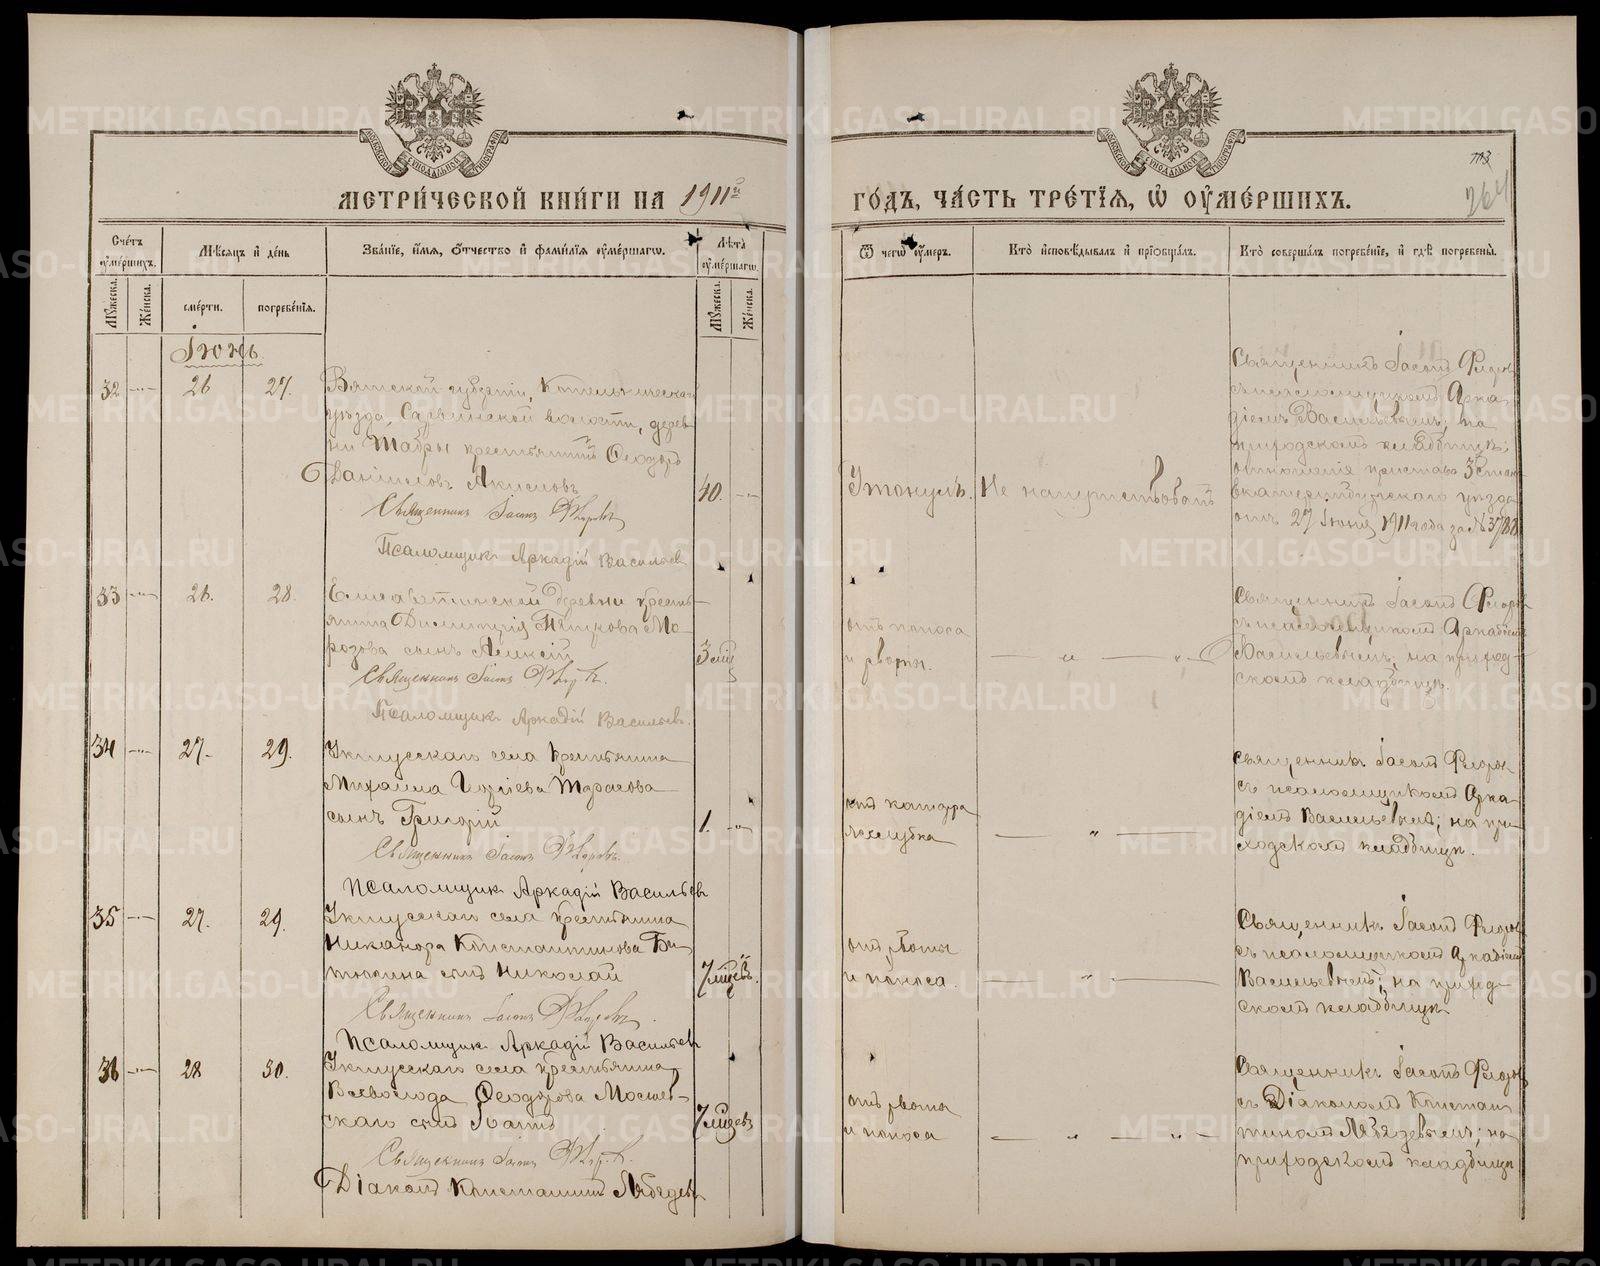 МЕТРИ́ЧЕСКОЙ КНИ́ГИ НА 1911й
ГО́ДЪ, ЧА́СТЬ ТРЕ́ТЇѦ, Ѡ҆ ОУ҆МЕ́РШИХЪ.
713
264
Счéтъ оу҆ме́ршихъ.
Мѣ́сѧцъ и҆ де́нь
Зва́нїе, и҆́мѧ, ѻ҆́тчество и҆ фами́лїѧ оу҆ме́ршагѡ.
Лѣ́та оу҆ме́ршагѡ.
Ѿ чегѡ̀ оу҆́меръ.
Кто̀ и҆сповѣ́дывалъ и҆ прїѡбща́лъ.
Кто̀ соверша́лъ погребе́нїе, и҆ гдѣ̀ погребены̀.
Мꙋ́жеска.
Же́нска.
сме́рти.
погребе́нїѧ.
Мꙋ́жеска.
Же́нска.
Іюнь.
32
26
27.
Вятской губерніи, Котельническаго
уѣзда, волости, дерев
ни крестьянинъ Ѳеодоръ
Данииловъ Акиловъ
40.
Священникъ Іасонъ Флоровъ
Псаломщикъ Аркадій Васильев
Утонулъ.
Не напутствованъ
Священникъ Іасонъ Флоровъ
съ псаломщикомъ Арка
діемъ Васильевымъ; на
приходскомъ кладбищѣ;
отношенія пристава 3 стана
Екатеринбургскаго уѣзда
отъ 27 Іюня 1911 года за № 3788
33
26.
28.
Елисаветинской деревни кресть
янина Димитрія Мо
розова сынъ Алексій
3 мѣс
Священникъ Іасонъ Флоровъ.
Псаломщикъ Аркадій Васильевъ.
отъ поноса
и рвоты.
Священникъ Іасонъ Флоровъ
съ псаломщикомъ Аркадіемъ
Васильевымъ; на приход
скомъ кладбищѣ.
34
27.
29.
Уктусскаго села крестьянина
Михаила Тарасова
сынъ Григорій
1.
Священникъ Іасонъ Флоровъ.
Псаломщикъ Аркадій Васильевъ
отъ катарра
желудка
Священникъ Іасонъ Флоровъ
съ псаломщикомъ Арка
діемъ Васильевымъ; на при
ходскомъ кладбищѣ.
35
27.
29.
Уктусскаго села крестьянина
Никанора Константинова
сынъ Николай
7 мѣсцевъ.
Священникъ Іасонъ Флоровъ.
Псаломщикъ Аркадій Васильевъ
отъ рвоты
и поноса.
Священникъ Іасонъ Флоровъ
съ псаломщикомъ Аркадіемъ
Васильевымъ; на приход
скомъ кладбищѣ
36
28
30.
Уктусскаго села крестьянина
Всеволода Ѳеодорова Москов
скаго сынъ Іоаннъ
7 мѣсцевъ
Священникъ Іасонъ Флоровъ.
Діаконъ Константинъ Лебедевъ
отъ рвоты
и поноса
Священникъ Іасонъ Флоровъ
съ Діакономъ Констан
тиномъ Лебедевымъ; на
приходскомъ кладбищѣ